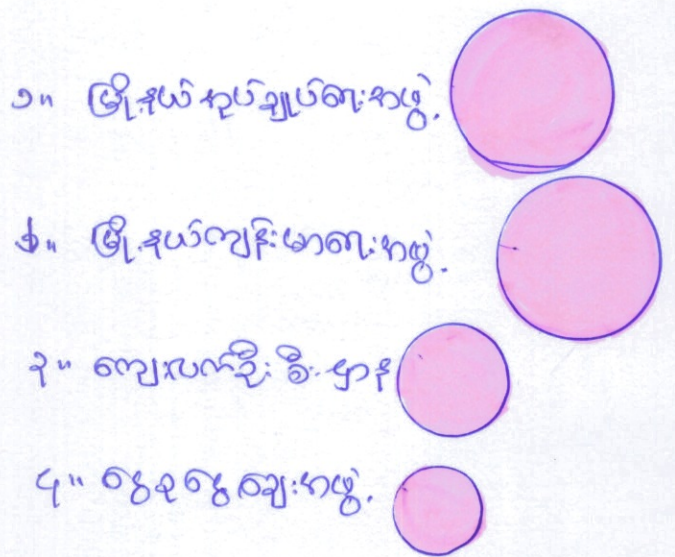 ၁။ မြို့နယ်အုပ်ချုပ်ရေးအဖွဲ့.
၂။ မြို့နယ်ကျန်းမာရေးအဖွဲ့.
၃။ ကျေးလက်ဦးစီးဌာန
၄။ ငွေစုငွေချေးအဖွဲ့.